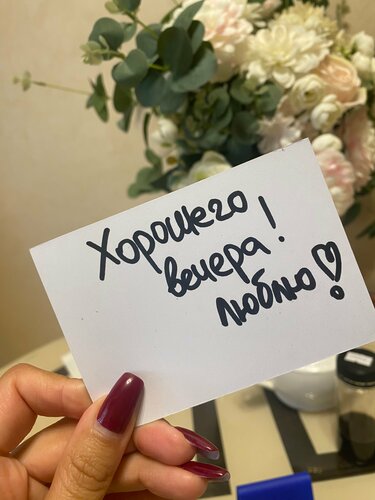 Хорошего
вечера!
люблю!